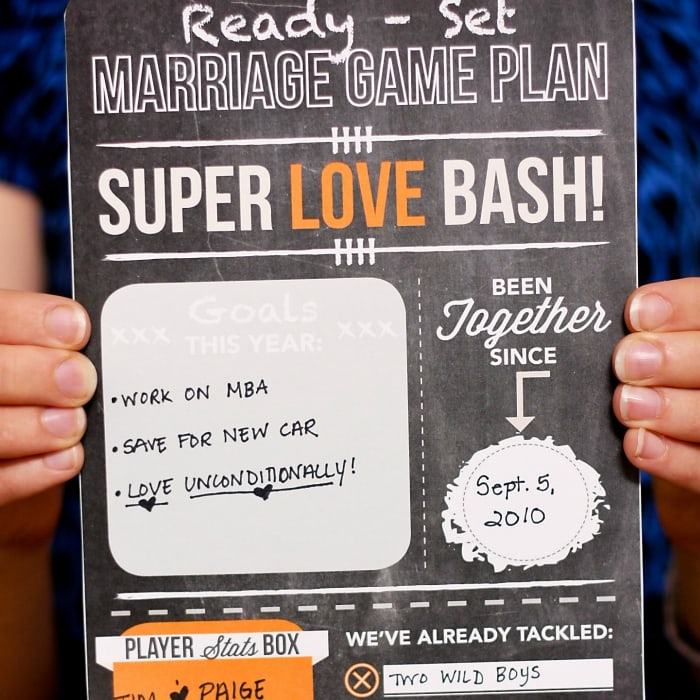 Ready - Set
MARRIAGE GAME PLAN
SUPER LOVE BASH!
Goals
XXX THIS YEAR: XXX
•WORK ON MBA
•SAVE FOR NEW CAR
•LOVE UNCONDITIONALLY!
BEEN
Together
SINCE
Sept. 5,
2010
PLAYER Stats BOX
TIM & PAIGE
WE'VE ALREADY TACKLED:
TWO WILD BOYS